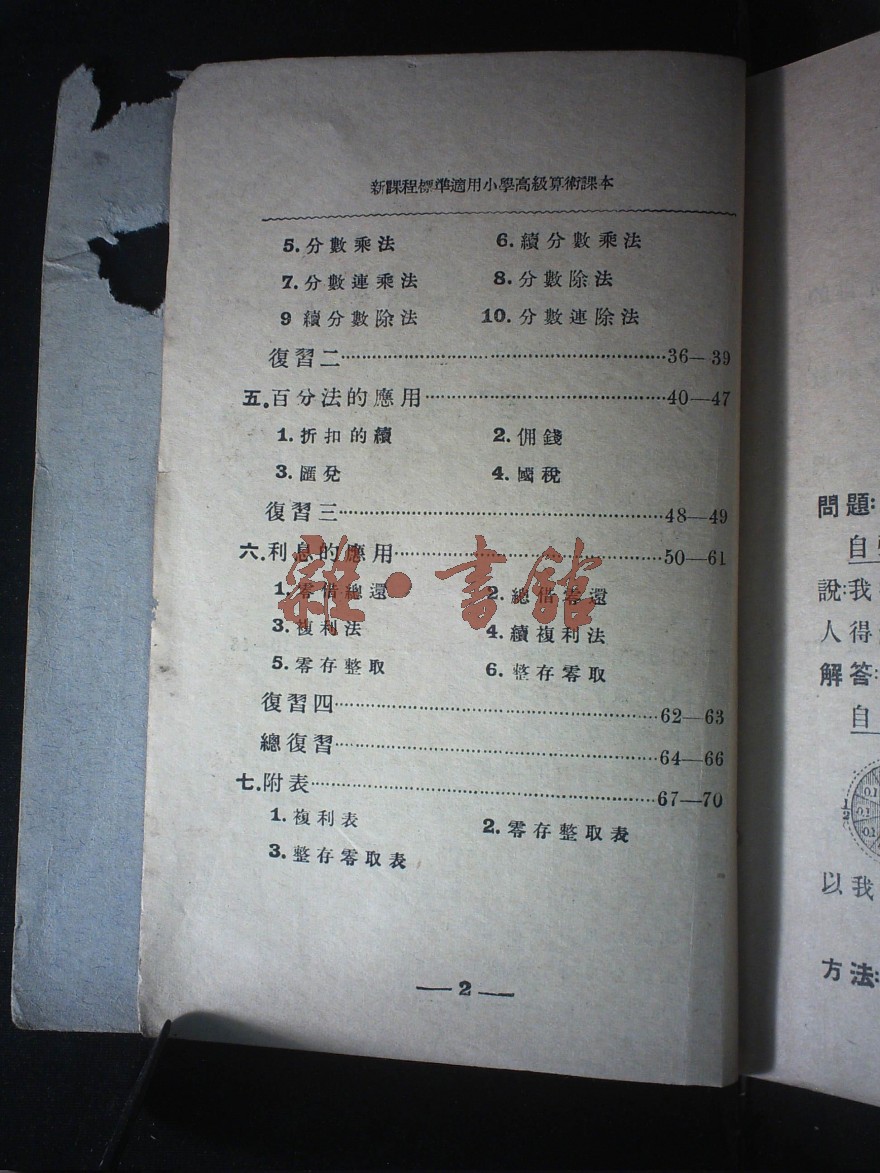 新課程標準適用小學高級算術課本
5.分數乘法 6.續分數乘法
7.分數連乘法 8.分數除法
9 續分數除法 10.分數連除法
復習二……36—39
五.百分法的應用……40—47
1.折扣的續 2.佣錢
3.匯兌 4.國稅
復習三……48—49
六.利息的應用……50—61
1.零借總還 2.總借零還
3.複利法 4.續複利法
5.零存整取 6.整存零取
復習四……62—63
總復習……64—66
七.附表……67—70
1.複利表 2.零存整取表
3.整存零取表
—2—
雜·書館
問題:
自
說:我
人得
解答:
自
1/2
0.1
0.1
0.1
以我
方法: